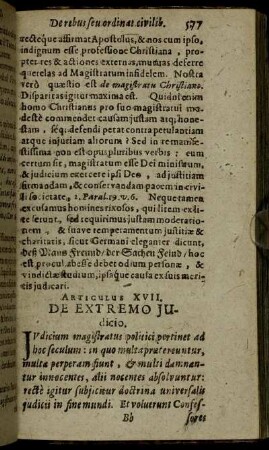 De rebus seu ordinat. civilib. 577
recteque affirmat Apostolus, & nos cum ipso,
indignum esse professione Christiana, prop-
ter res & actiones externas, mutuas deferre
querelas ad Magistratum infidelem. Nostra
verò quæstio est de magistratu Christiano.
Disparitas igitur maxima est. Quid? si enim
homo Christianus pro suo magistratui mo-
destè commendet causam justam atq; hone-
stam, seq; defendi petat contra perulantiam
atque injuriam aliorum? Sed in re manife-
stissima non est opus pluribus verbis: cum
certum sit, magistratum esse Dei ministrum,
& judicium exercere ipsi Deo, ad justitiam
firmandam, & conservandam pacem in civi-
li societate, 2. Paral. 19. v. 6. Neque tamen
excusamus homines rixosos, qui litem ex lite
serunt, sed requirimus justam moderatio-
nem, & suave temperamentum justitiæ &
charitatis, sicut Germani eleganter dicunt,
deß Mans Freund/ der Sachen Feind/ hoc
est procul abesse debet odium personæ, &
vindictæ studium, ipsaque causa ex suis meri-
tis judicari.
ARTICULUS XVII.
DE EXTREMO JU-
dicio.
IVdicium magistratus politici pertinet ad
hoc seculum: in quo multa prætereuntur,
multa perperam fiunt, & multi damnan-
tur innocentes, alii nocentes absolvuntur:
rectè igitur subjicitur doctrina universalis
judicii in fine mundi. Et voluerunt Confes-
Bb sores